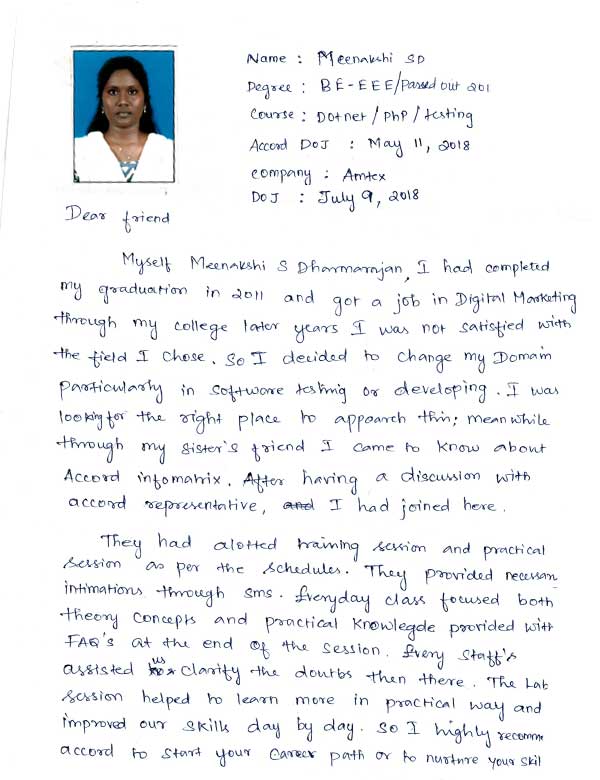 Name : Meenakshi SD
Degree : BE-EEE/Passed out 201
Course : Dotnet / PhP / testing
Accord DOJ : May 11, 2018
company : Amtex
DOJ : July 9, 2018
Dear friend
Myself Meenakshi S Dharmarajan, I had completed
my graduation in 2011 and got a job in Digital Marketing
through my college later years I was not satisfied with
the field I chose. So I decided to change my Domain
particularly in software testing or developing. I was
looking for the right place to appoarch this; mean while
through my sister's friend I came to know about
Accord infomatrix. After having a discussion with
accord representative, and I had joined here.
They had alotted training session and practical
session as per the schedules. They provided necessan
intimations through sms. Everyday class focused both
theory concepts and practical knowlegde provided with
FAQ's at the end of the session. Every staff's
assisted us clarify the doutbs then there. The Lab
session helped to learn more in practical way and
improved our skills day by day. So I highly recomm
accord to start your career path or to nurture your skil